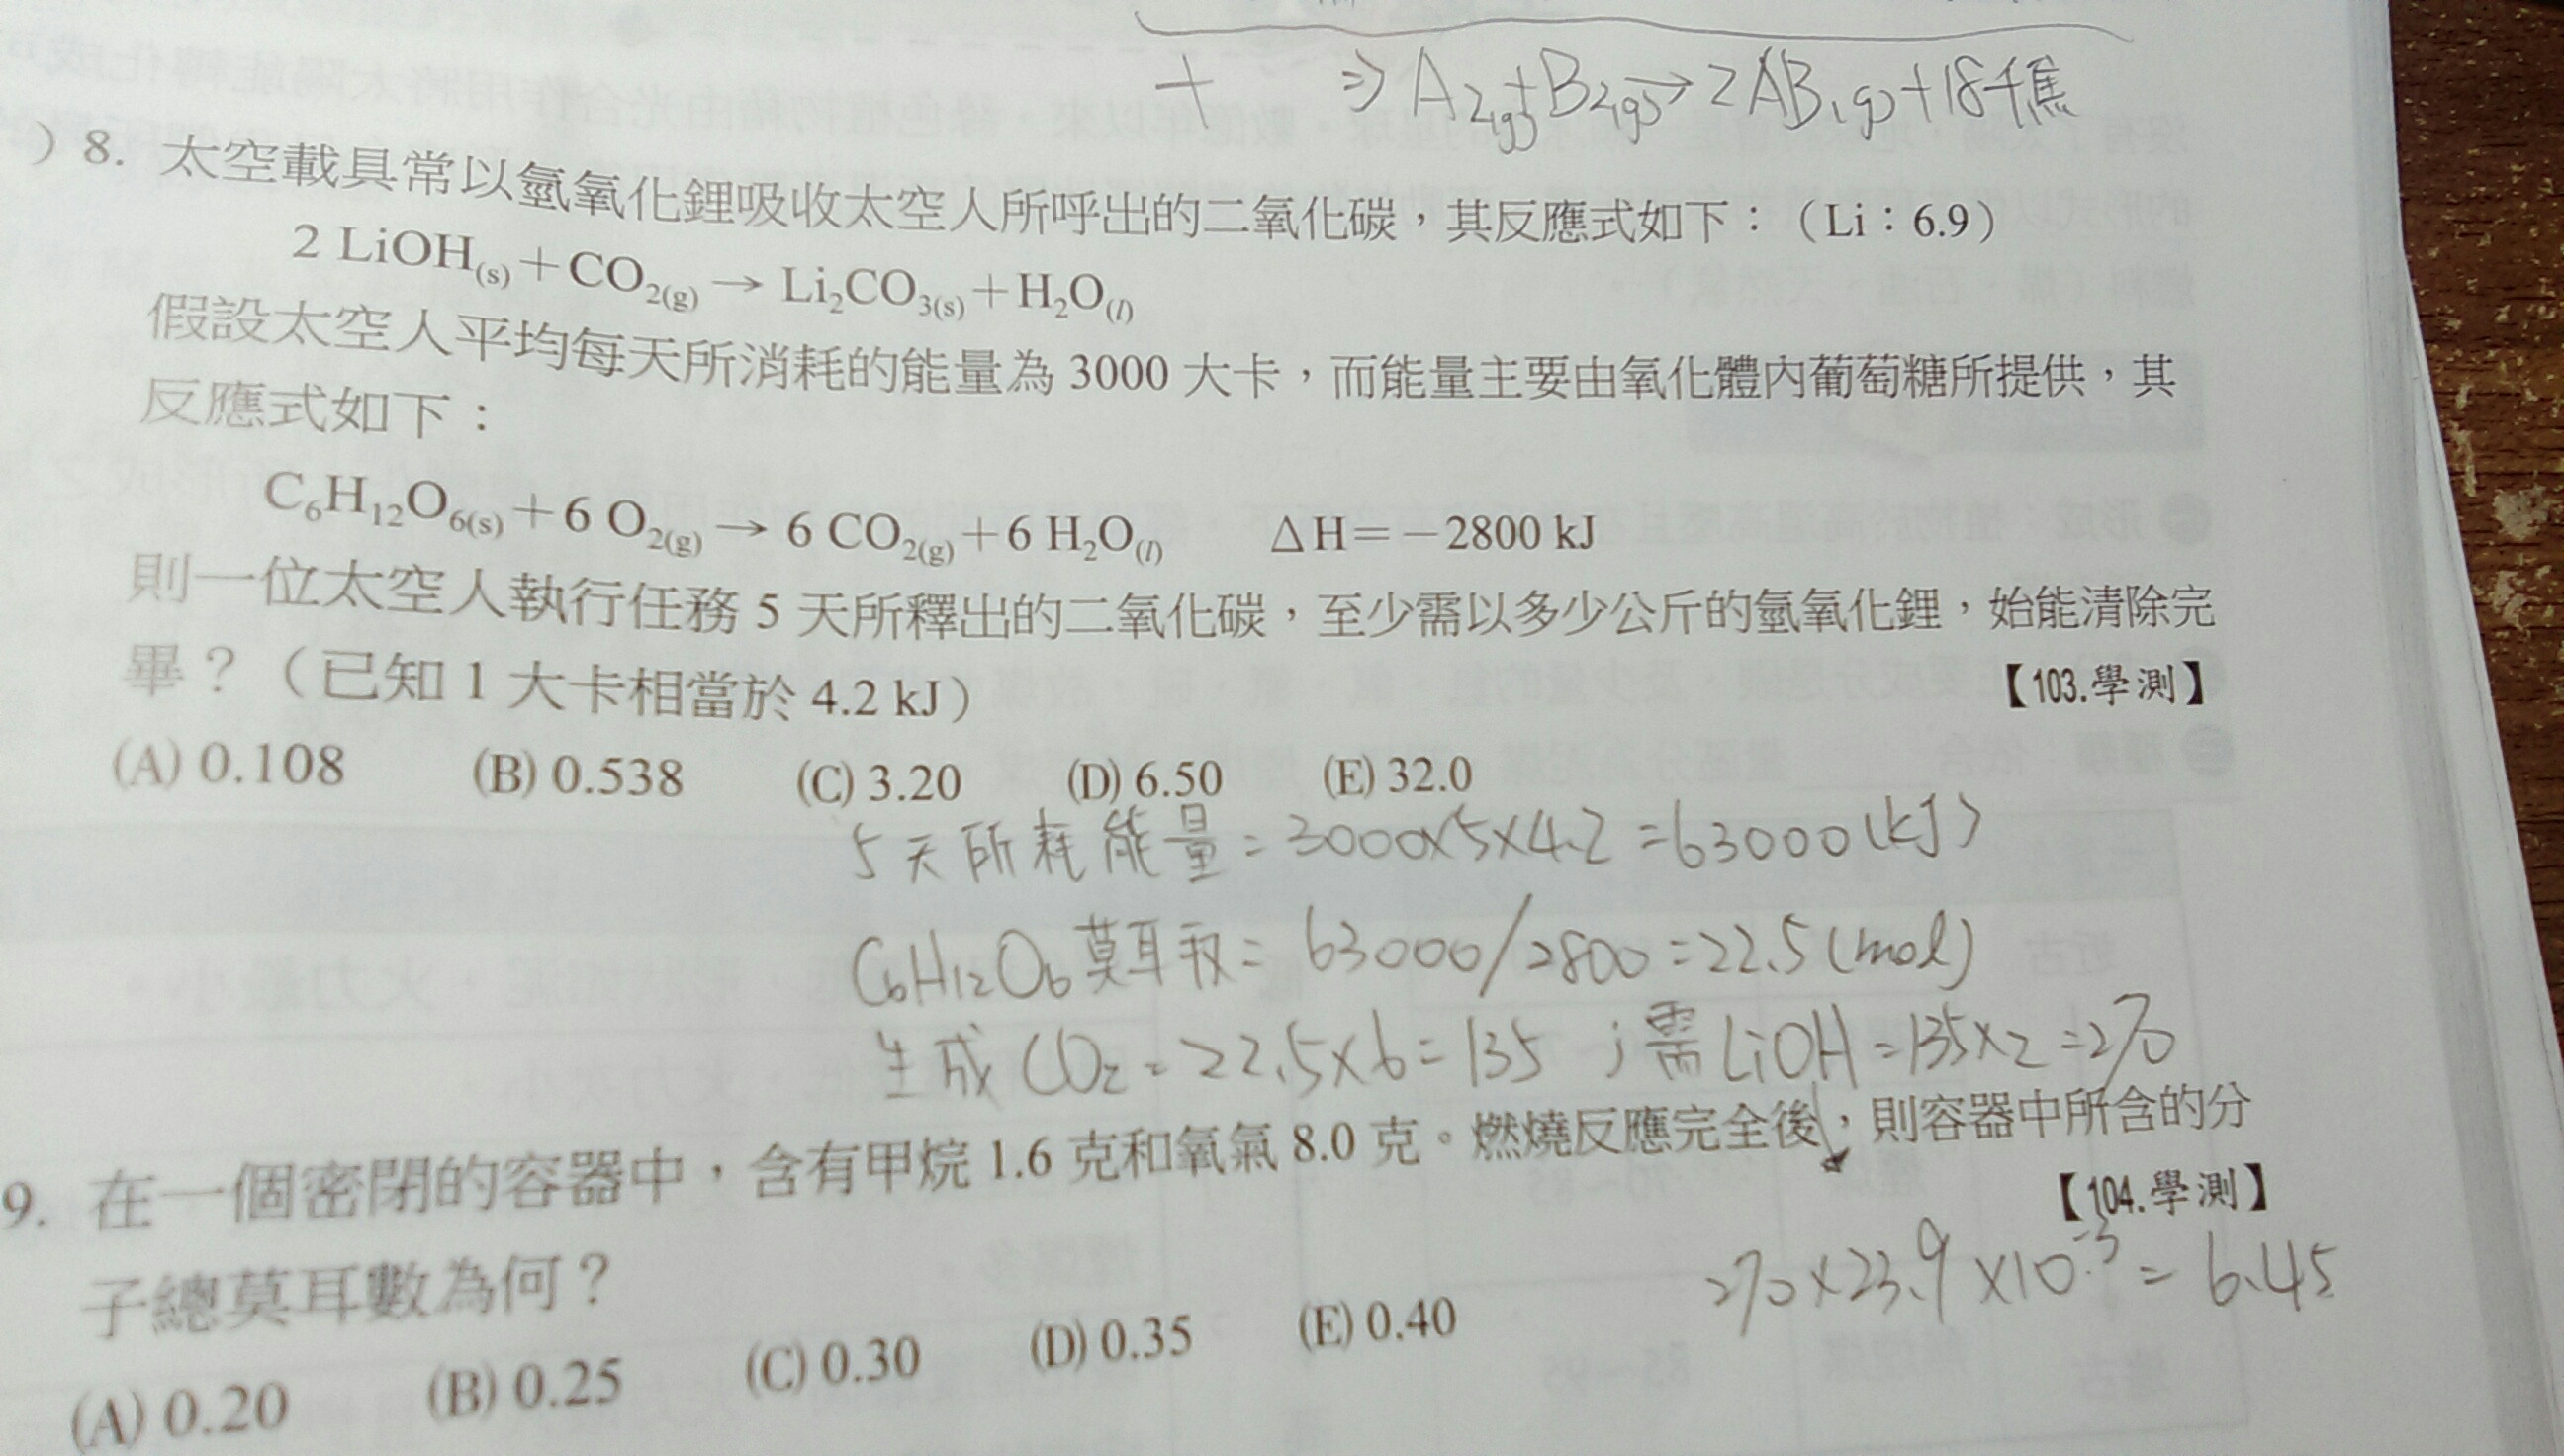 + ⇒ A₂(g)+B₂(g)→2AB(g)+18千焦
)8. 太空載具常以氫氧化鋰吸收太空人所呼出的二氧化碳,其反應式如下:(Li:6.9)
2 LiOH(s)+CO₂(g)→Li₂CO₃(s)+H₂O(l)
假設太空人平均每天所消耗的能量為 3000 大卡,而能量主要由氧化體內葡萄糖所提供,其
反應式如下:
C₆H₁₂O₆(s)+6 O₂(g)→6 CO₂(g)+6 H₂O(l) △H=-2800 kJ
則一位太空人執行任務 5 天所釋出的二氧化碳,至少需以多少公斤的氫氧化鋰,始能清除完
畢?(已知 1 大卡相當於 4.2 kJ) 【103.學測】
(A) 0.108 (B) 0.538 (C) 3.20 (D) 6.50 (E) 32.0
5天所耗能量=3000×5×4.2=63000(kJ)
C₆H₁₂O₆莫耳=63000/2800=22.5(mol)
生成CO₂=22.5×6=135 ; 需LiOH=135×2=270
9. 在一個密閉的容器中,含有甲烷 1.6 克和氧氣 8.0 克。燃燒反應完全後,則容器中所含的分
子總莫耳數為何? 【104.學測】
270×23.9×10⁻³=6.45
(A) 0.20 (B) 0.25 (C) 0.30 (D) 0.35 (E) 0.40